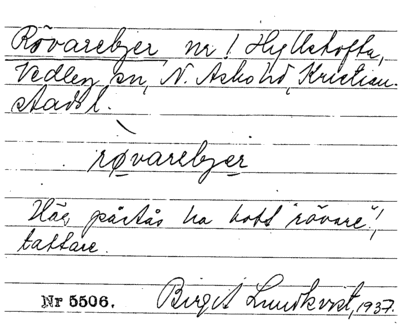 Rövarebjer, nr 1 Hyllstofta,
Vedby sn, N. Åsbo hd, Kristian-
stads l.
røvarebjer
Här påstås ha bott "rövare"!
tattare.
Nr 5506. Birgit Lundkvist, 1937.